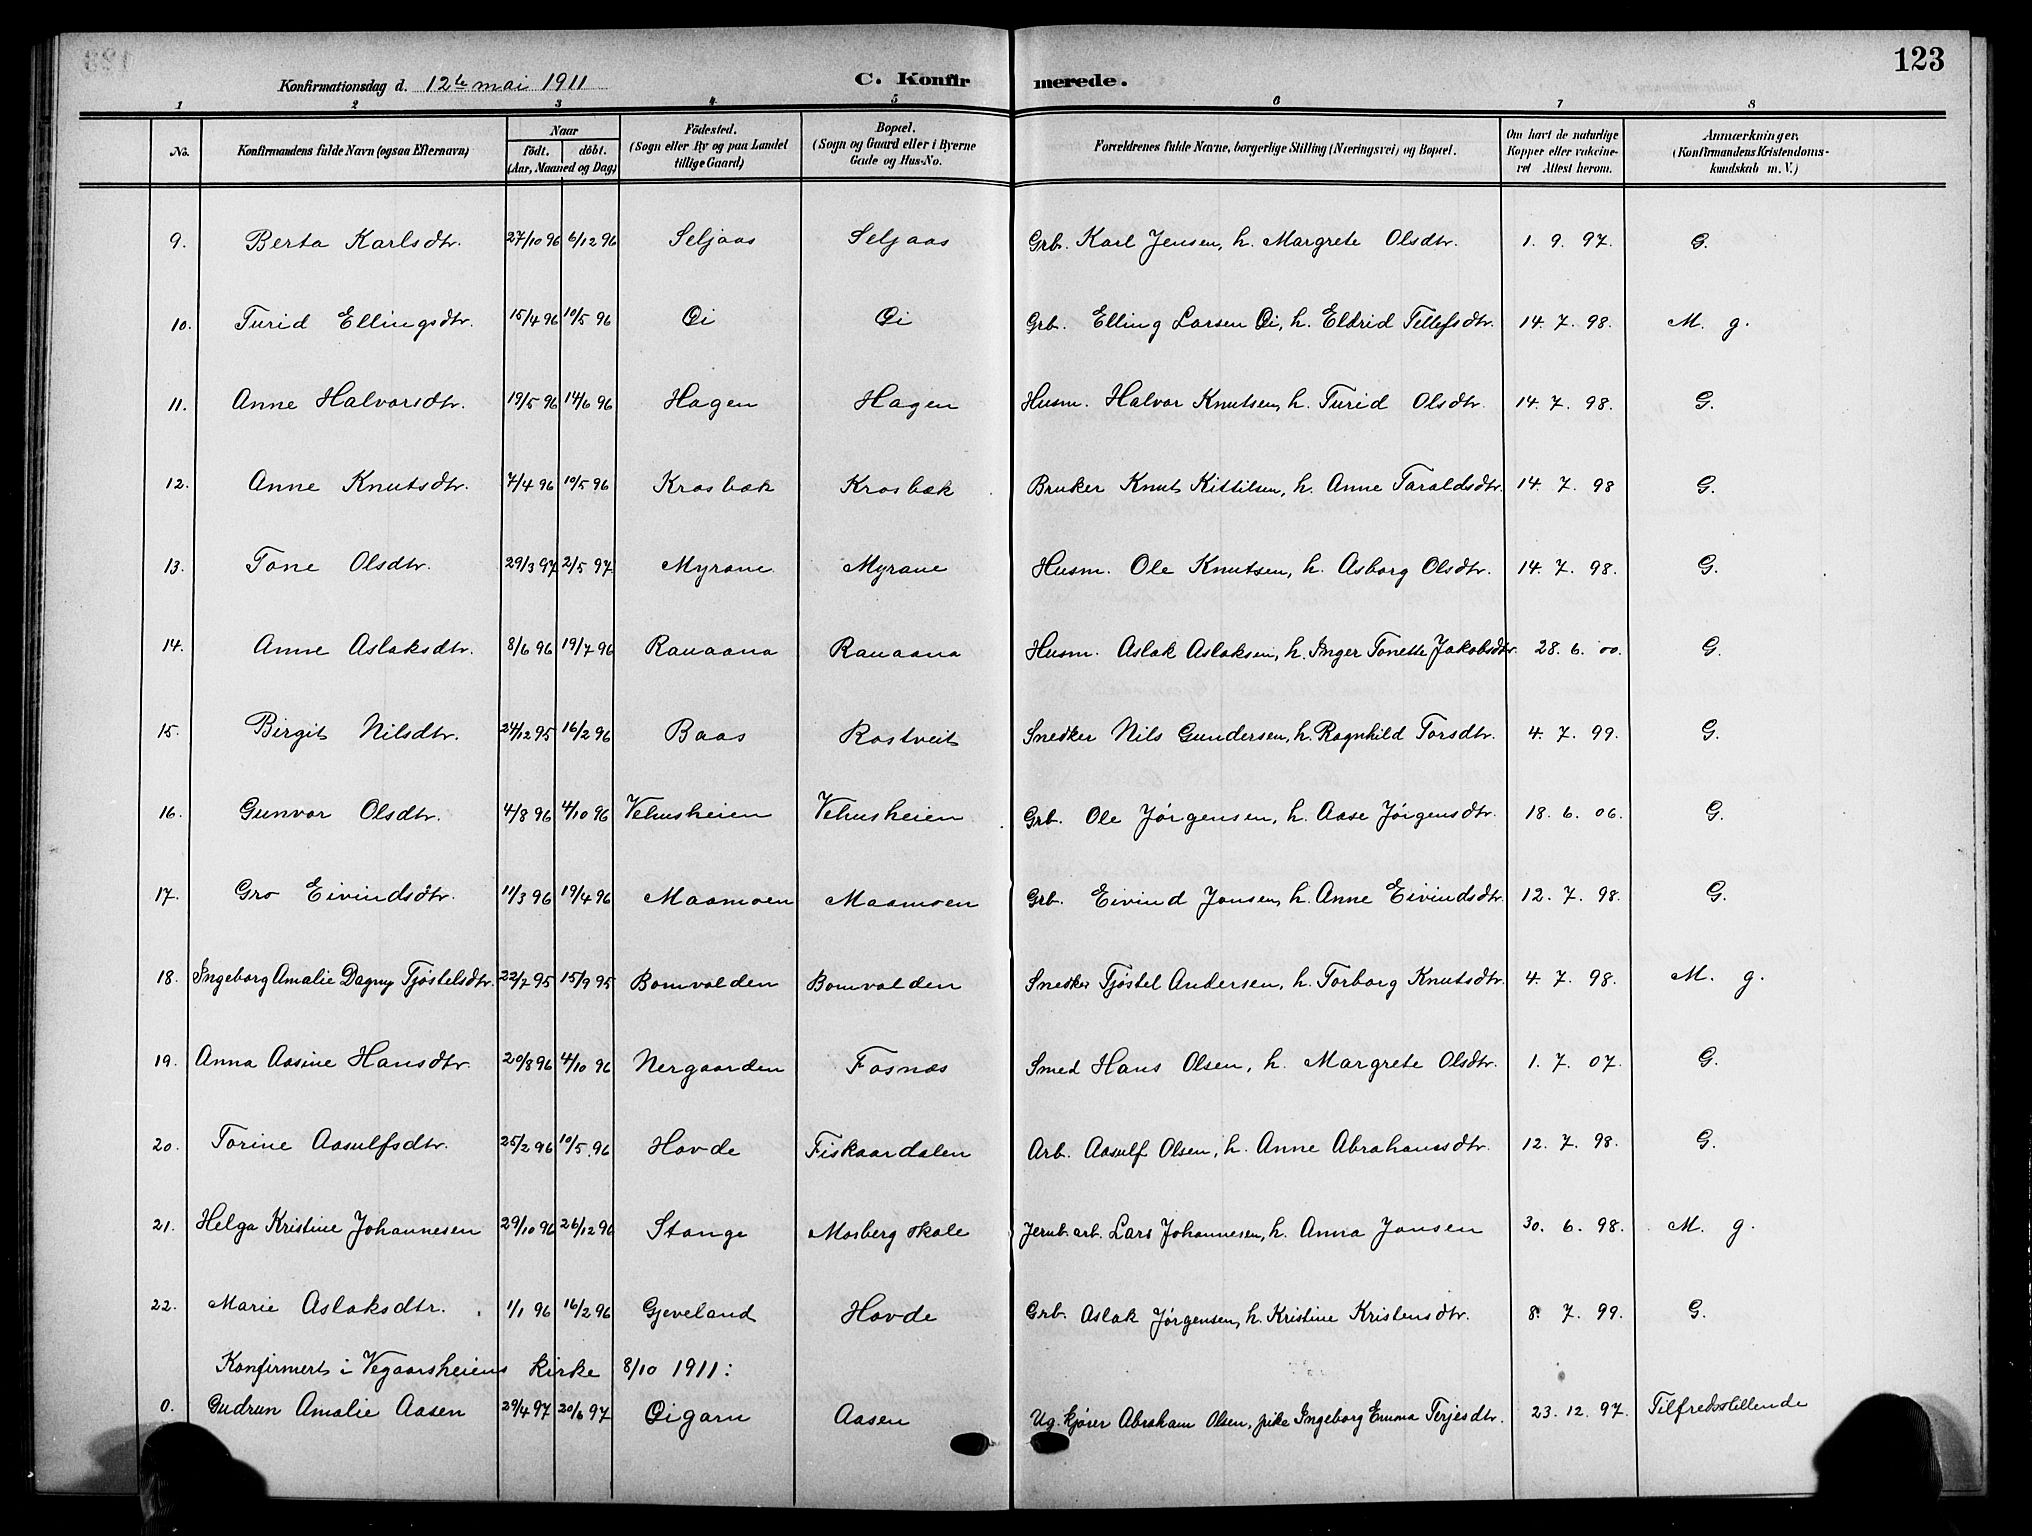 123
Konfirmationsdag d. 12te mai 1911 C. Konfirmerede.
1 2 3 4 5 6 7 8
No. Konfirmandens fulde Navn (ogsaa Efternavn) Naar født. døbt. (Aar, Maaned og Dag) Fødested. (Sogn eller By og paa Landet tillige Gaard) Bopæl. (Sogn og Gaard eller i Byerne Gade og Hus-No. Forældrenes fulde Navne, borgerlige Stilling (Næringsvei) og Bopæl. Om havt de naturlige Kopper eller vakcineret Attest herom. Anmærkninger. (Konfirmandens Kristendomskundskab m. V.)
9. Berta Karlsdtr. 27/10 96 6/12 96 Seljaas Seljaas Grb. Karl Jensen, h. Margrete Olsdtr. 1. 9. 97. G.
10. Turid Ellingsdtr. 15/4 96 10/5 96 Øi Øi Grb. Elling Larsen Øi, h. Eldrid Tellefsdtr. 14. 7. 98. M. g.
11. Anne Halvorsdtr. 19/5 96 14/6 96 Hagen Hagen Husm. Halvor Knutsen, h. Turid Olsdtr. 14. 7. 98. G.
12. Anne Knutsdtr. 7/4 96 10/5 96 Krosbæk Krosbæk Bruker Knut Kittilsen, h. Anne Taraldsdtr. 14. 7. 98 G.
13. Tone Olsdtr. 29/3 97 2/5 97 Myrane Myrane Husm. Ole Knutsen, h. Asborg Olsdtr. 14. 7. 98. G.
14. Anne Aslaksdtr. 8/6 96 19/7 96 Rauaana Rauaana Husm. Aslak Aslaksen, h. Inger Tonette Jakobsdtr. 28. 6. 00. G.
15. Birgit Nilsdtr. 24/12 95 16/2 96 Baas Rostveit Snedker Nils Gundersen, h. Ragnhild Torsdtr. 4. 7. 99. G.
16. Gunvor Olsdtr. 4/8 96 4/10 96 Vehusheien Vehusheien Grb. Ole Jørgensen, h. Aase Jørgensdtr. 18. 6. 06. G.
17. Gro Eivindsdtr. 11/3 96 19/4 96 Maamoen Maamoen Grb. Eivind Jonsen, h. Anne Eivindsdtr. 12. 7. 98. G.
18. Ingeborg Amalie Dagny Tjøstelsdtr. 22/7 95 15/9 95 Bomvolden Bomvolden Snedker Tjøstel Andersen, h. Torborg Knutsdtr. 4. 7. 98. M. g.
19. Anna Aasine Hansdtr. 20/8 96 4/10 96 Nergaarden Fosnæs Smed Hans Olsen, h. Margrete Olsdtr. 1. 7. 07. G.
20. Torine Aasulfsdtr. 25/2 96 10/5 96 Hovde Fiskaardalen Arb. Aasulf Olsen, h. Anne Abrahamsdtr. 12. 7. 98. G.
21. Helga Kristine Johannesen 29/10 96 26/12 96 Stange Mosberg skole Jernb. arb. Lars Johannesen, h. Anna Jonsen 30. 6. 98. M. g.
22. Marie Aslaksdtr. 1/1 96 16/2 96 Gjeveland Hovde Grb. Aslak Jørgensen, h. Kristine Kristensdtr. 8. 7. 99. G.
Konfirmert i Vegaarsheiens kirke 8/10 1911:
0. Gudrun Amalie Aasen 29/4 97 20/6 97 Øigarn Aasen Ug. kjører Abraham Olsen, pike Ingeborg Emma Terjesdtr. 23. 12. 97. Tilfredsstillende